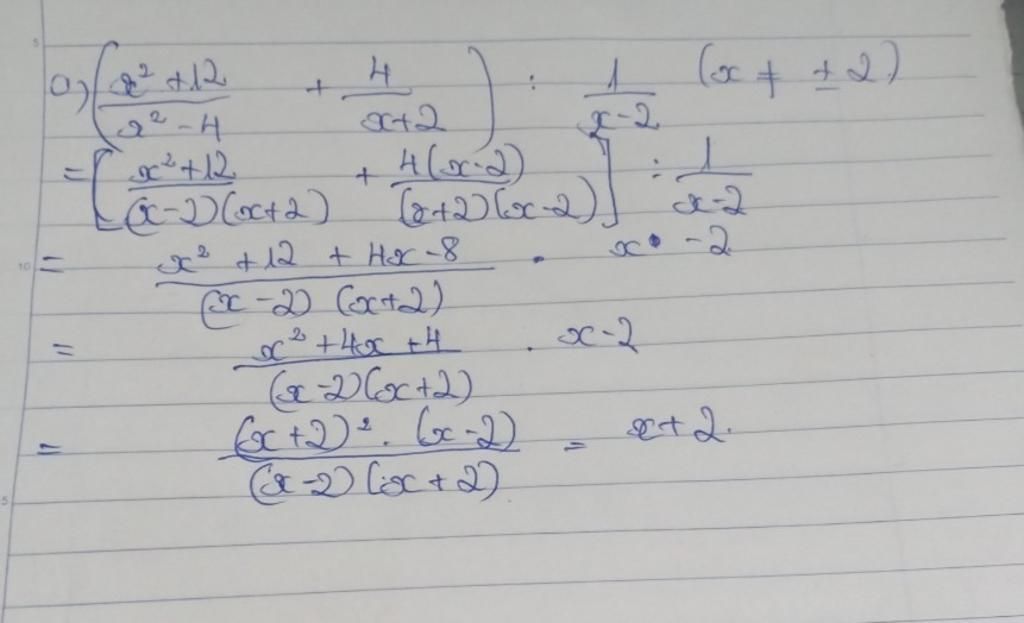 a) ( (x² + 12)/(x² - 4) + 4/(x+2) ) : 1/(x-2) (x ≠ ±2)
= [ (x² + 12)/((x-2)(x+2)) + 4(x-2)/((x+2)(x-2)) ] : 1/(x-2)
= (x² + 12 + 4x - 8)/((x-2)(x+2)) . x - 2
= (x² + 4x + 4)/((x-2)(x+2)) . x-2
= ((x+2)² . (x-2))/((x-2)(x+2)) = x+2.